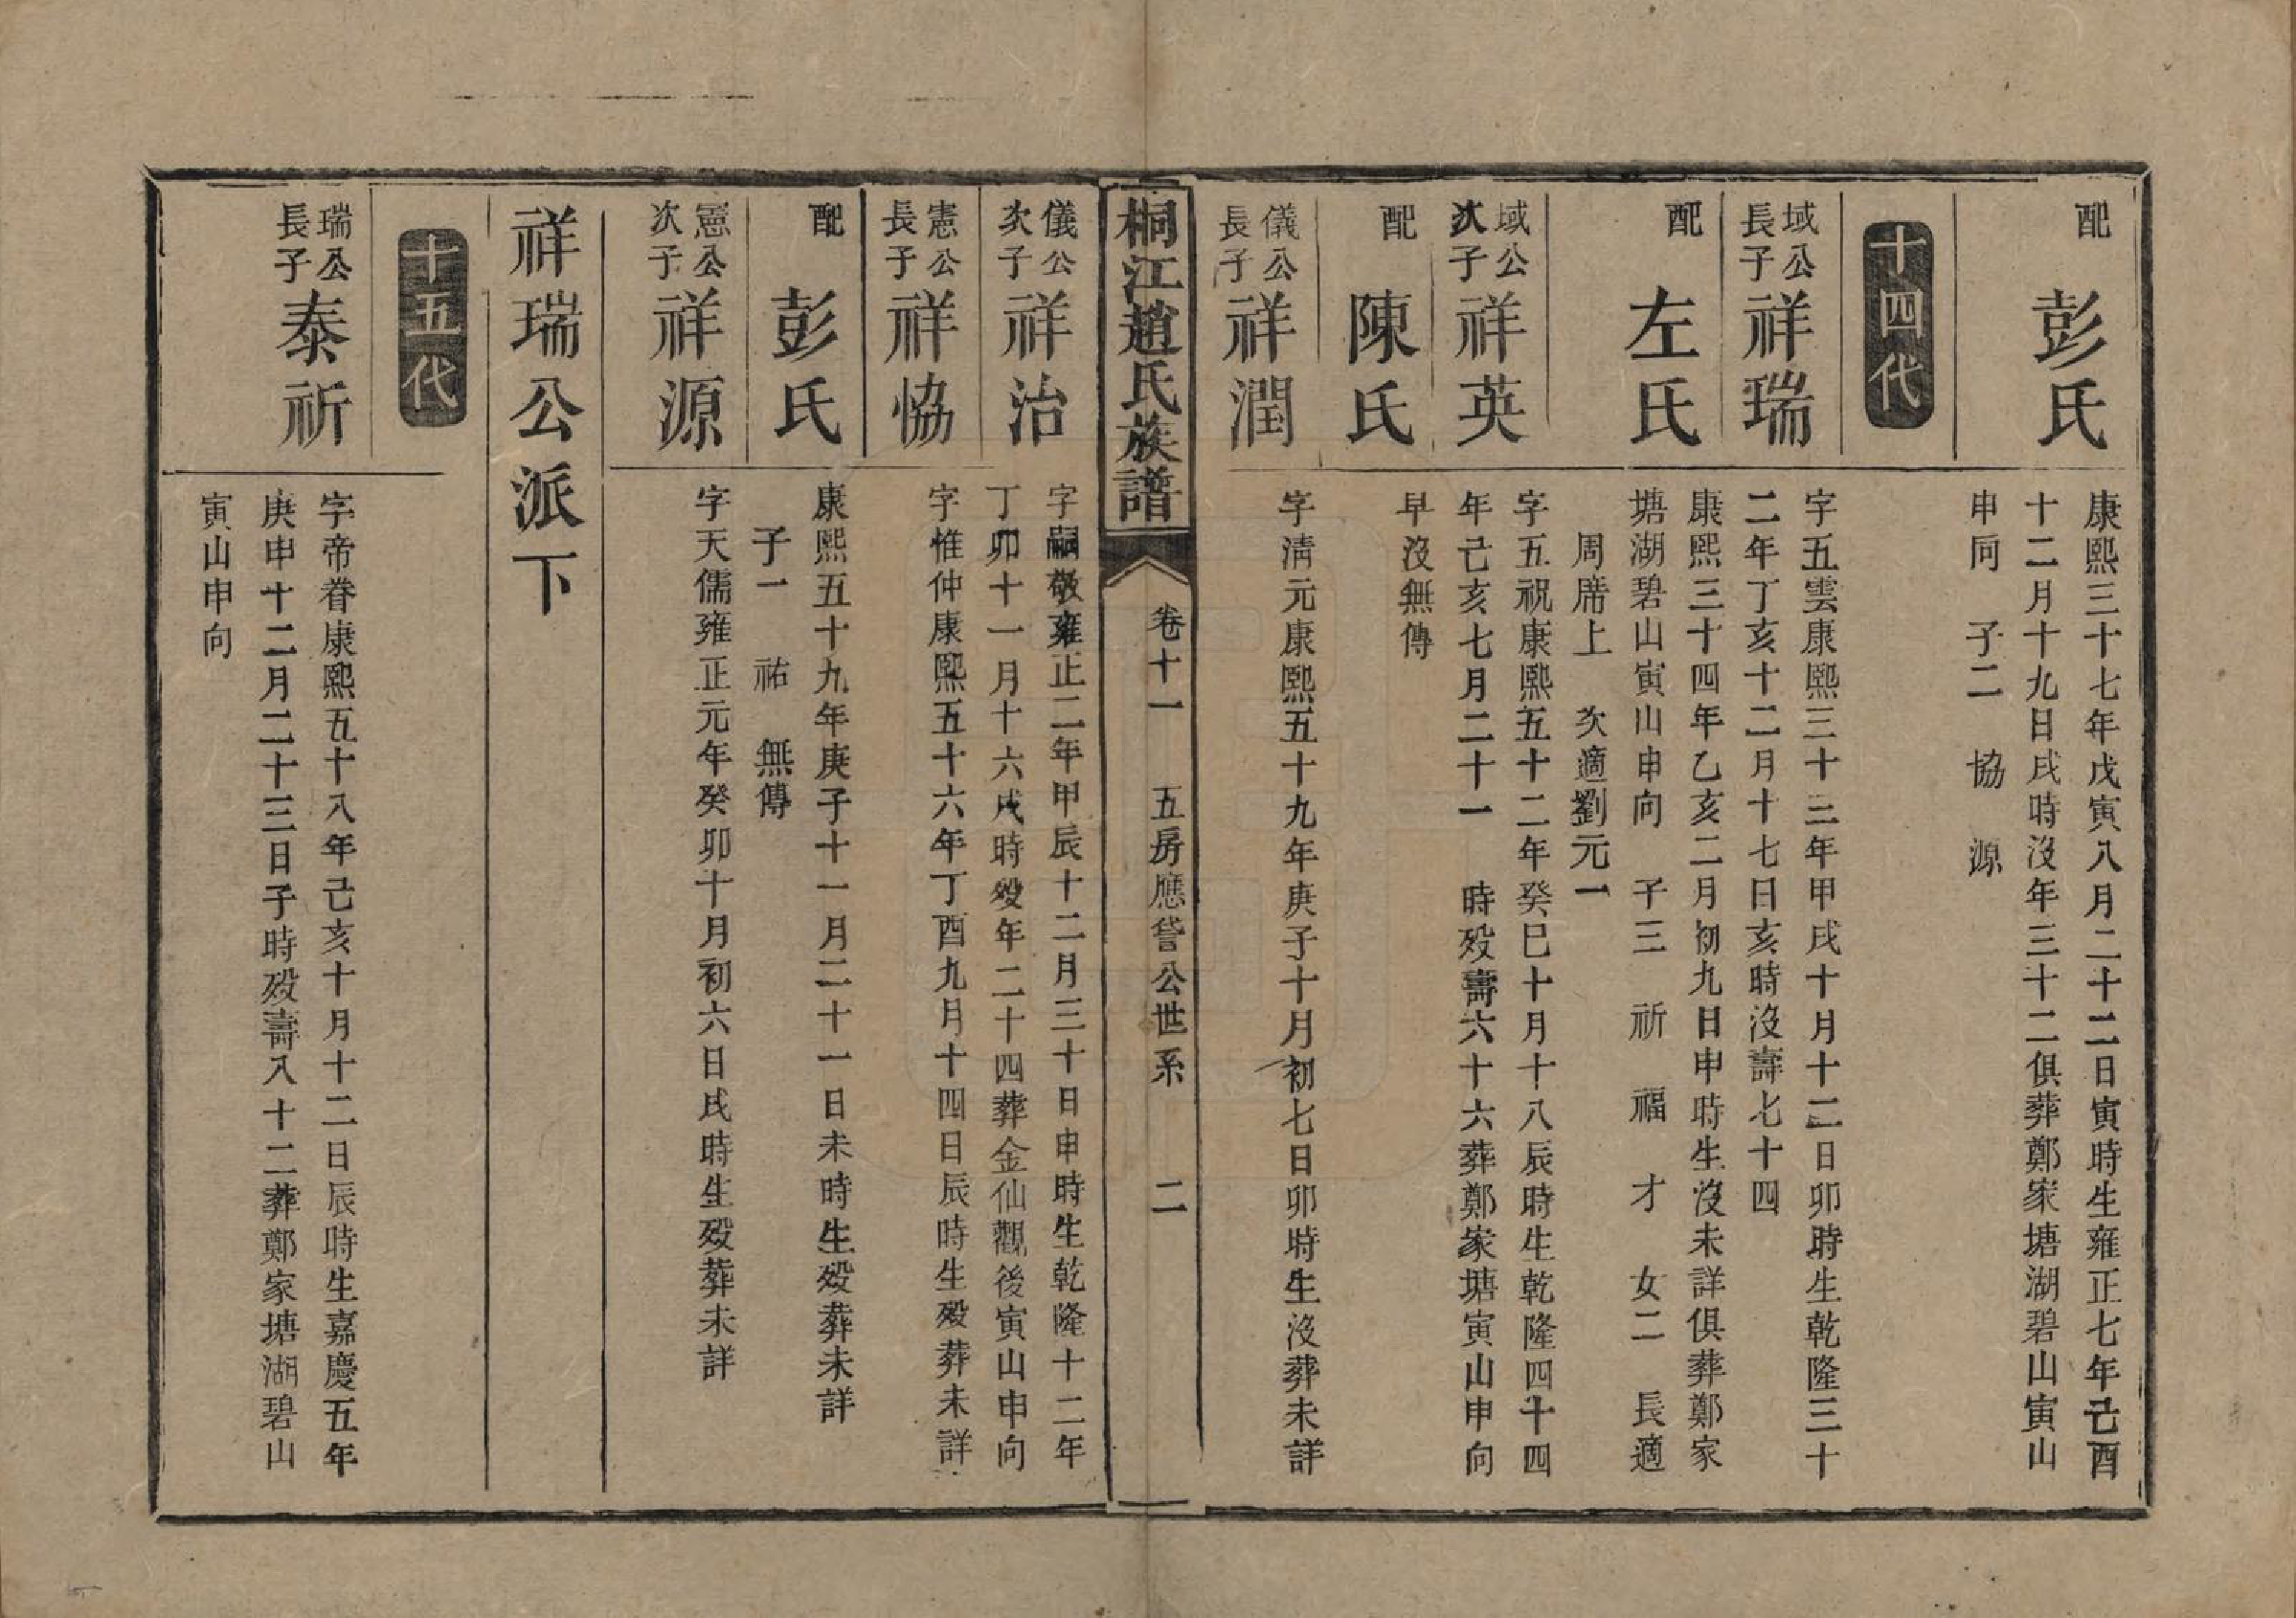 配
彭氏
康熙三十七年戊寅八月二十二日寅時生雍正七年己酉
十二月十九日戌時沒年三十二俱葬鄭家塘湖碧山寅山
申向　子二　協　源
十四代
域公
長子
祥瑞
字五雲康熙三十三年甲戌十月十二日卯時生乾隆三十
二年丁亥十二月十七日亥時沒壽七十四
配
左氏
康熙三十四年乙亥二月初九日申時生沒未詳俱葬鄭家
塘湖碧山寅山申向　子三　祈　福　才　女二　長適
周席上　次適劉元一
域公
次子
祥英
字五祝康熙五十二年癸巳十月十八辰時生乾隆四十四
年己亥七月二十一　時歿壽六十六葬鄭家塘寅山申向
配
陳氏
早沒無傳
儀公
長子
祥潤
字清元康熙五十九年庚子十月初七日卯時生沒葬未詳
桐江趙氏族譜
卷十一　五房應詧公世系　二
儀公
次子
祥治
字嗣敬雍正二年甲辰十二月三十日申時生乾隆十二年
丁卯十一月十六戌時歿年二十四葬金仙觀後寅山申向
憲公
長子
祥恊
字惟仲康熙五十六年丁酉九月十四日辰時生歿葬未詳
配
彭氏
康熙五十九年庚子十一月二十一日未時生歿葬未詳
子一　祐　無傳
憲公
次子
祥源
字天儒雍正元年癸卯十月初六日戌時生歿葬未詳
祥瑞公派下
十五代
瑞公
長子
泰祈
字帝眷康熙五十八年己亥十月十二日辰時生嘉慶五年
庚申十二月二十三日子時歿壽八十二葬鄭家塘湖碧山
寅山申向